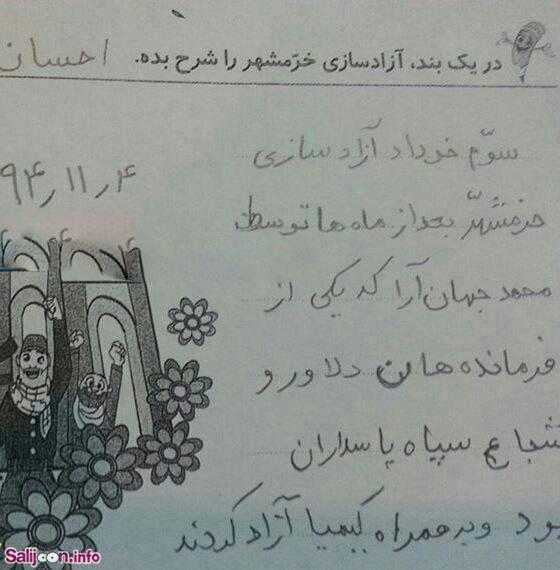 در یک بند، آزادسازی خرّمشهر را شرح بده. احسان
سوّم خرداد آزاد سازی
۹۴٫۱۱٫۴
خرمشهرّ بعد از ماه ها توسط
محمد جهان آرا که یکی از
فرمانده های دلاور و
شجاع سپاه پاسداران
بود و به همراه کیمیا آزاد کردند
Salijoon.info